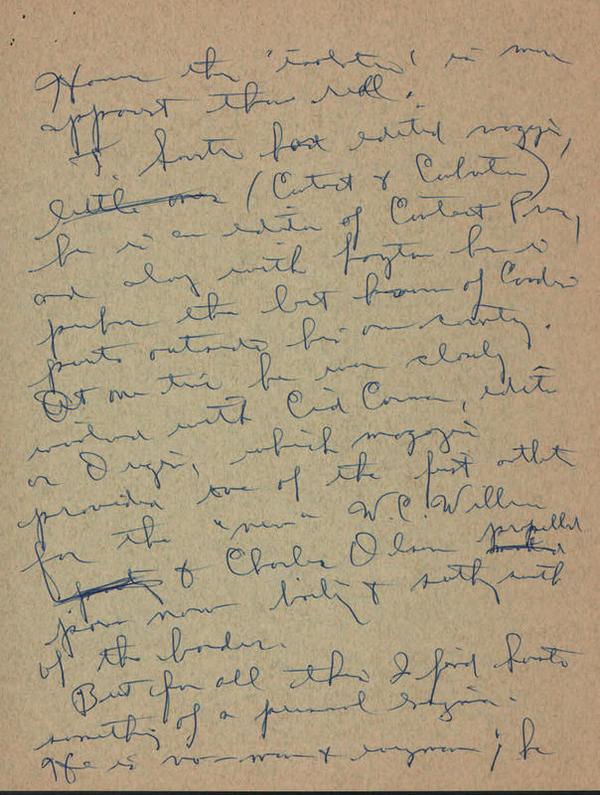 Hence the 'isolation' is more
apparent than real.
Souster has edited magazines,
little ones (Contact &
he is an editor of Contact Press,
and along with Layton he is
perhaps the best known of Canadian
poets outside his own country.
At one time he was closely
involved with Cid Corman, editor
or Origin, which magazine
provided one of the first outlets
for the "new" W.C. Williams
& Charles Olson propelled
now & south
of the border.
But for all this I find Souster
something of a personal enigma.
He is no-man & everyman; he